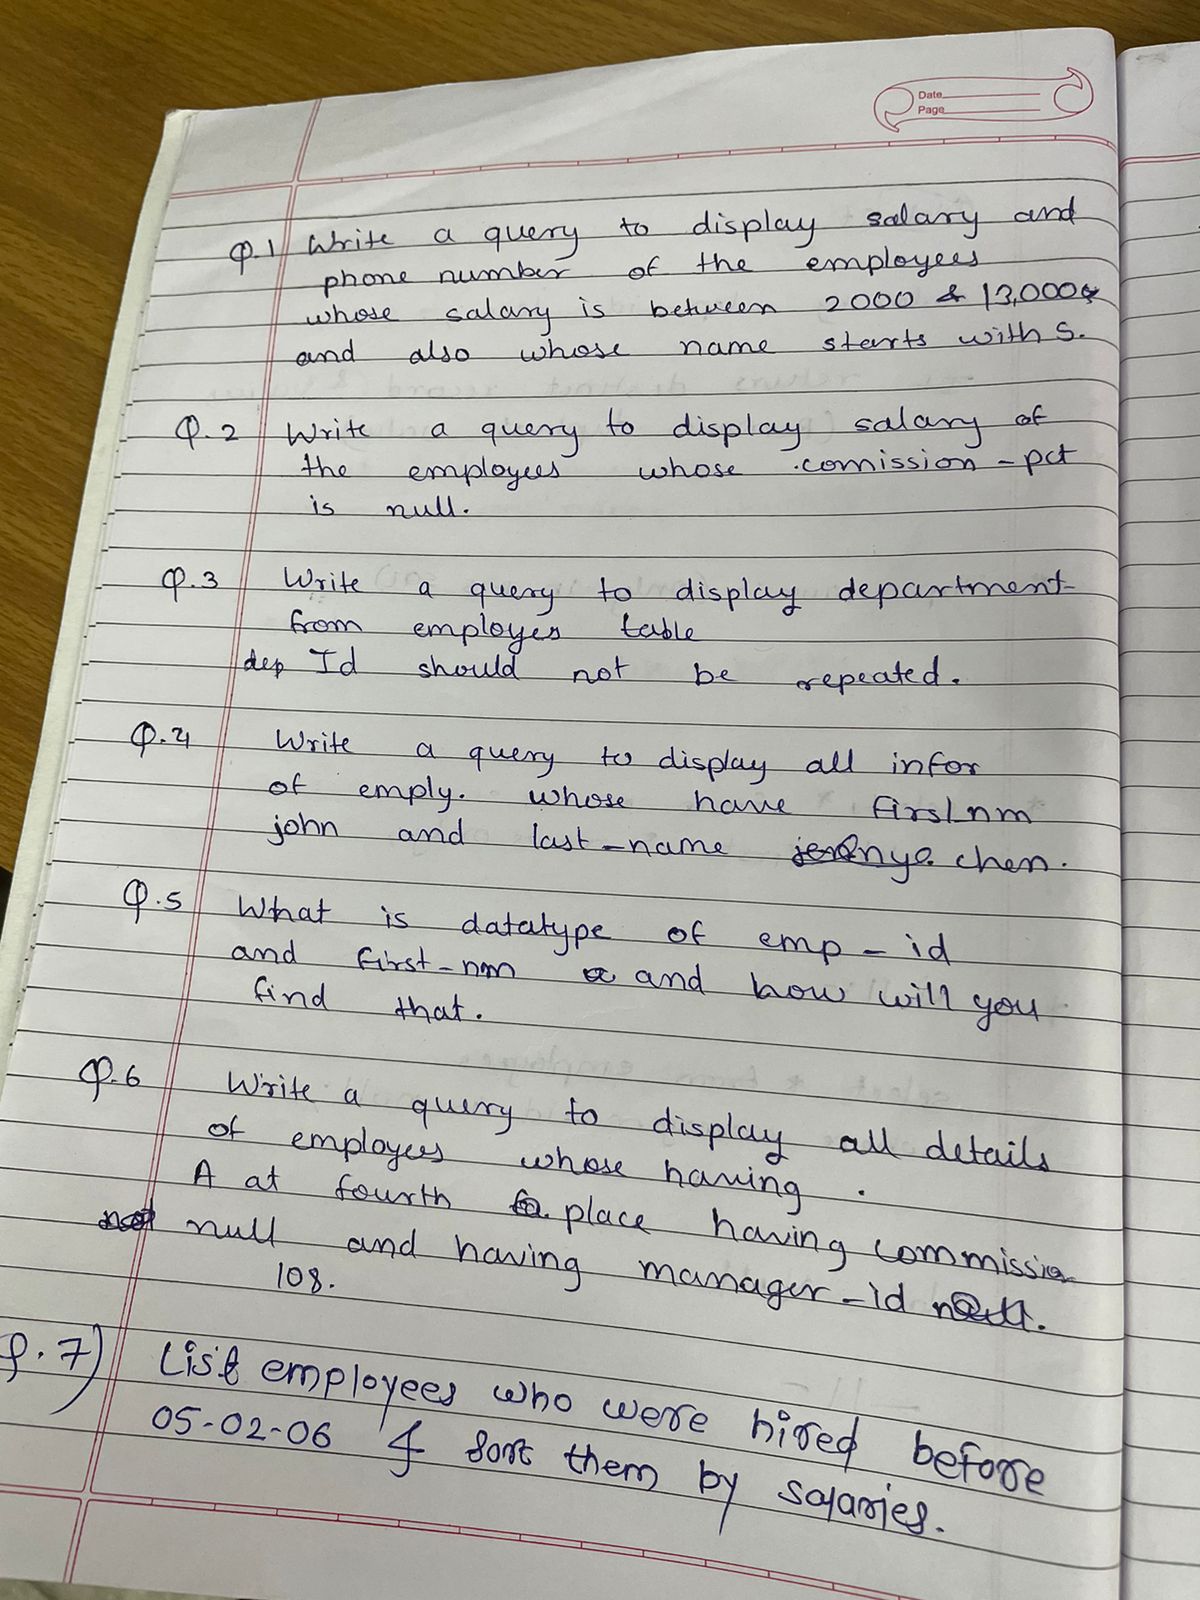 Date
Page
Q.1 Write a query to display salary and
phone number of the employees
whose salary is between 2000 & 13,000
and also whose name starts with S.
Q.2 Write a query to display salary of
the employees whose comission-pct
is null.
Q.3 Write a query to display department
from employes table
dep Id should not be repeated.
Q.4 Write a query to display all infor
of emply. whose have first_nm
john and last-name chen.
Q.5 What is datatype of emp-id
and first-nm and how will you
find that.
Q.6 Write a query to display all details
of employees whose having
A at fourth place having commissio
null and having manager-id
108.
Q.7) List employees who were hired before
05-02-06 & sort them by salaries.